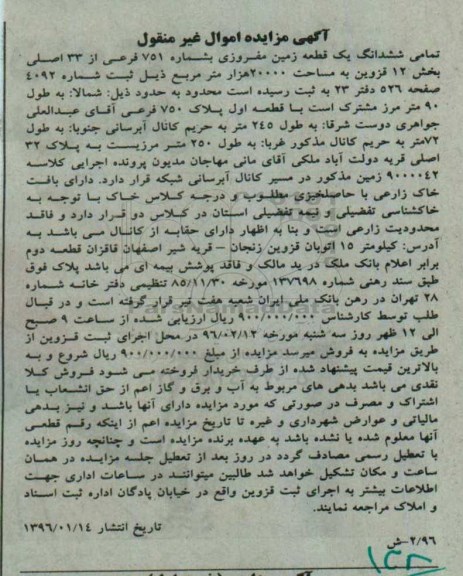 آگهی مزایده اموال غیر منقول
تمامی ششدانگ یک قطعه زمین مفروزی بشماره ۷۵۱ فرعی از ۳۳ اصلی
بخش ۱۲ قزوین به مساحت ۲۰۰۰۰هزار متر مربع ذیل ثبت شماره ۴۰۹۲
صفحه ۵۲۶ دفتر ۲۳ به ثبت رسیده است محدود به حدود ذیل: شمالا: به طول
۹۰ متر مرز مشترک است با قطعه اول پلاک ۷۵۰ فرعی آقای عبدالعلی
جواهری دوست شرقا: به طول ۲۴۵ متر به حریم کانال آبرسانی جنوبا: به طول
۷۲متر به حریم کانال مذکور غربا: به طول ۲۵۰ متر مرزیست به پلاک ۳۲
اصلی قریه دولت آباد ملکی آقای مانی مهاجان مدیون پرونده اجرایی کلاسه
۹۰۰۰۰۴۲ زمین مذکور در مسیر کانال آبرسانی شبکه قرار دارد. دارای بافت
خاک زارعی با حاصلخیزی مطلوب و درجه کلاس خاک با توجه به
خاکشناسی تفضیلی و نیمه تفضیلی استان در کلاس دو قرار دارد و فاقد
محدودیت زارعی است و بنا به اظهار دارای حقابه از کانال می باشد به
آدرس: کیلومتر ۱۵ اتوبان قزوین زنجان – قریه شیر اصفهان قاقزان قطعه دوم
برابر اعلام بانک ملک در ید مالک و فاقد پوشش بیمه ای می باشد پلاک فوق
طبق سند رهنی شماره ۱۳۷۶۹۸ مورخه ۸۵/۱۱/۳۰ تنظیمی دفتر خانه شماره
۲۸ تهران در رهن بانک ملی ایران شعبه هفت تیر قرار گرفته است و در قبال
طلب توسط کارشناس ۹۰۰/۰۰۰/۰۰۰ ریال ارزیابی شده از ساعت ۹ صبح
الی ۱۲ ظهر روز سه شنبه مورخه ۹۶/۰۲/۱۲ در محل اجرای ثبت قزوین از
طریق مزایده به فروش میرسد مزایده از مبلغ ۹۰۰/۰۰۰/۰۰۰ ریال شروع و به
بالاترین قیمت پیشنهاد شده از طرف خریدار فروخته می شود فروش کلا
نقدی می باشد بدهی های مربوط به آب و برق و گاز اعم از حق انشعاب یا
اشتراک و مصرف در صورتی که مورد مزایده دارای آنها باشد و نیز بدهی
مالیاتی و عوارض شهرداری و غیره تا تاریخ مزایده اعم از اینکه رقم قطعی
آنها معلوم شده یا نشده باشد به عهده برنده مزایده است و چنانچه روز مزایده
با تعطیل رسمی مصادف گردد در روز بعد از تعطیل جلسه مزایده در همان
ساعت و مکان تشکیل خواهد شد طالبین میتوانند در ساعات اداری جهت
اطلاعات بیشتر به اجرای ثبت قزوین واقع در خیابان پادگان اداره ثبت اسناد
و املاک مراجعه نمایند.
تاریخ انتشار ۱۳۹۶/۰۱/۱۴
۲/۹۶-ش